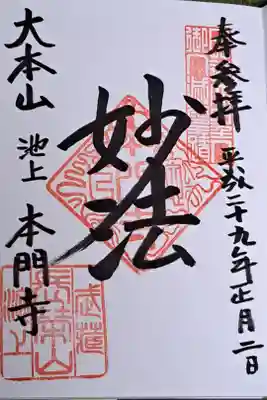 奉参拝
平成二十九年正月二日
妙法
大本山
池上
本門寺